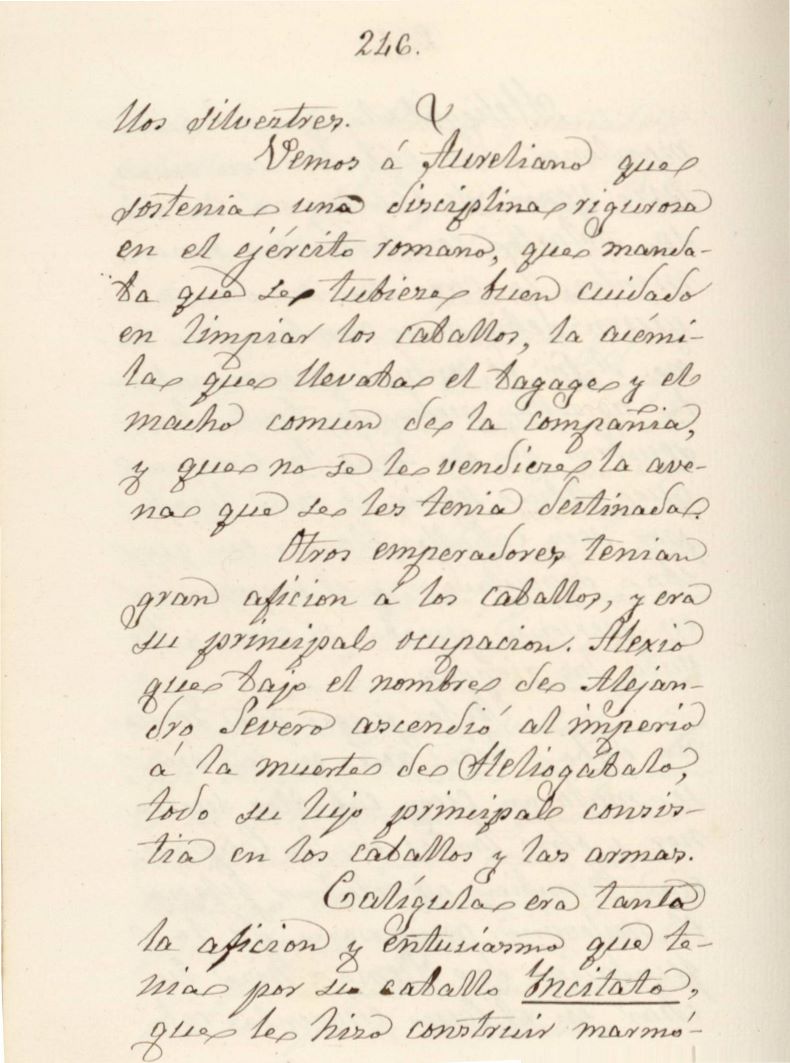 246.
llos silvestres.
Vemos á Aureliano que
sostenia una disciplina rigurosa
en el ejército romano, que manda-
ba que se tubiere buen cuidado
en limpiar los caballos, la acémi-
la que llevaba el bagage y el
macho comun de la compañia,
y que no se le vendiere la ave-
na que se les tenia destinada.
Otros emperadores tenian
gran aficion á los caballos, y era
su principal ocupacion. Alexio
que bajo el nombre de Alejan-
dro Severo ascendió al imperio
á la muerte de Heliogábalo,
todo su lujo principal consis-
tia en los caballos y las armas.
Calígula era tanta
la aficion y entusiasmo que te-
nia por su caballo Incitato,
que le hizo construir marmó-